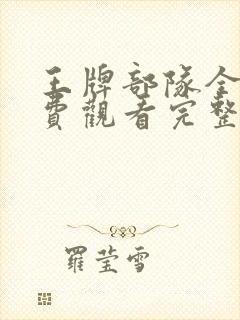 王牌部隊全
費觀看完整
羅瑩雪